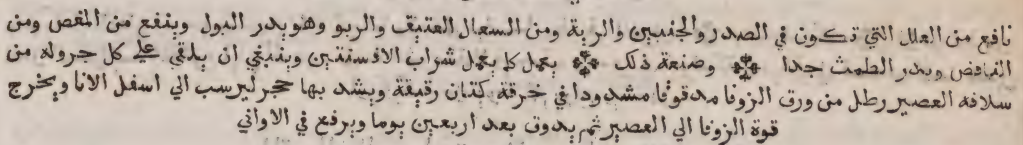 نافع من العلل التي تكون في الصدر والجنبين والرية ومن السعال العتيق والربو وهو يدر البول وينفع من المغص ومن
النافض ويدر الطمث جدا ۞ وصنعة ذلك ۞ يعمل كما يعمل شراب الافسنتين وينبغي ان يلقي علي كل جروله من
سلافه العصير رطل من ورق الزوفا مدقوقا مشدودا في خرقه كتان رقيقة ويشد بها حجر ليرسب الي اسفل الانا ويخرج
قوة الزوفا الي العصير ثم يدوق بعد اربعين يوما ويرفع في الاواني